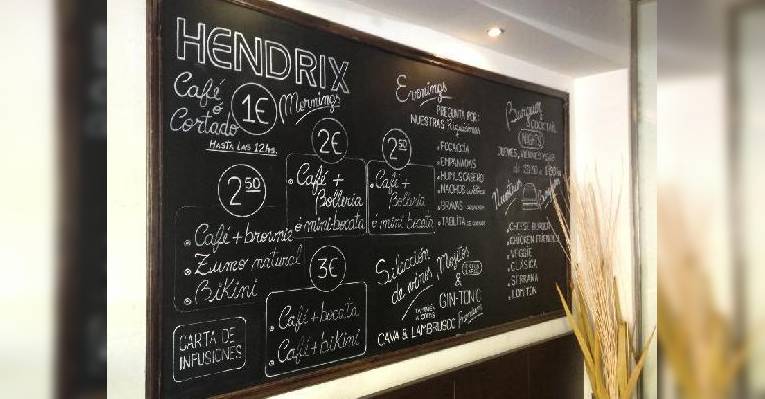 HENDRIX
Café
ó
Cortado
1€
Mornings
HASTA LAS 12HS.
2€
Café +
Bolleria
é mini-bocata
2 50
Café +
Bolleria
é mini bocata
2 50
Café + brownie
Zumo natural
Bikini
3€
Café + bocata
Café + bikini
CARTA DE
INFUSIONES
Evenings
PREGUNTA POR:
NUESTRAS
FOCACCIA
EMPANADAS
HUMUS CASERO
NACHOS
BRAVAS
TABLITA DE
Selección
de vinos
Mojitos
&
GIN-TONIC
Premium
CAVA & LAMBRUSCO
Burguer
& COCKTAIL
NIGHTS
JUEVES, VIERNES
Nuestras
CHEESE BURGER
CHICKEN
VEGGIE
CLÁSICA
SERRANA
LOMITON